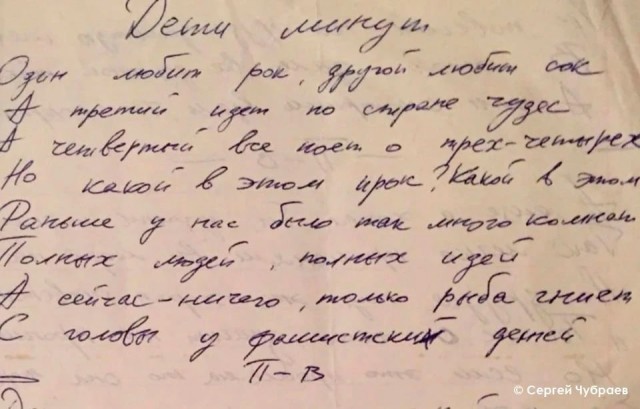 Дети минут
Один любит рок, другой любит сок
А третий идет по стране чудес
А четвертый все поет о трех-четырех
Но какой в этом прок? Какой в этом
Раньше у нас было так много комнат
Полных людей, полных идей
А сейчас - ничего, только рыба гниет
С головы у фашистских детей
П-в
© Сергей Чубраев